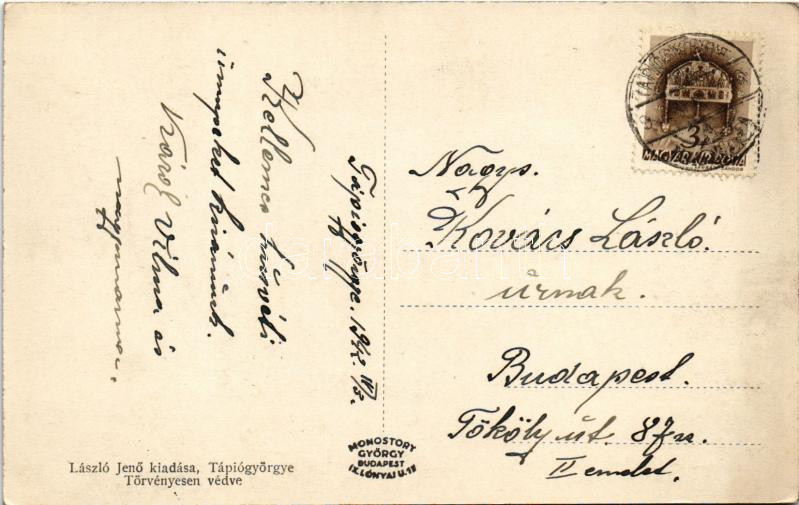 Tápiógyörgye. 1942 IV/3.
Kellemes húsvéti
ünnepeket kívánnak.
Károly Vilma és
nagymama.
Nagys.
Kovács László.
úrnak.
Budapest.
Tököly út. 87
II emelet.
3f
MAGYAR KIR. POSTA
MONOSTORY
GYÖRGY
BUDAPEST
IX. LÓNYAI U. 18
László Jenő kiadása, Tápiógyörgye
Törvényesen védve
darabanth